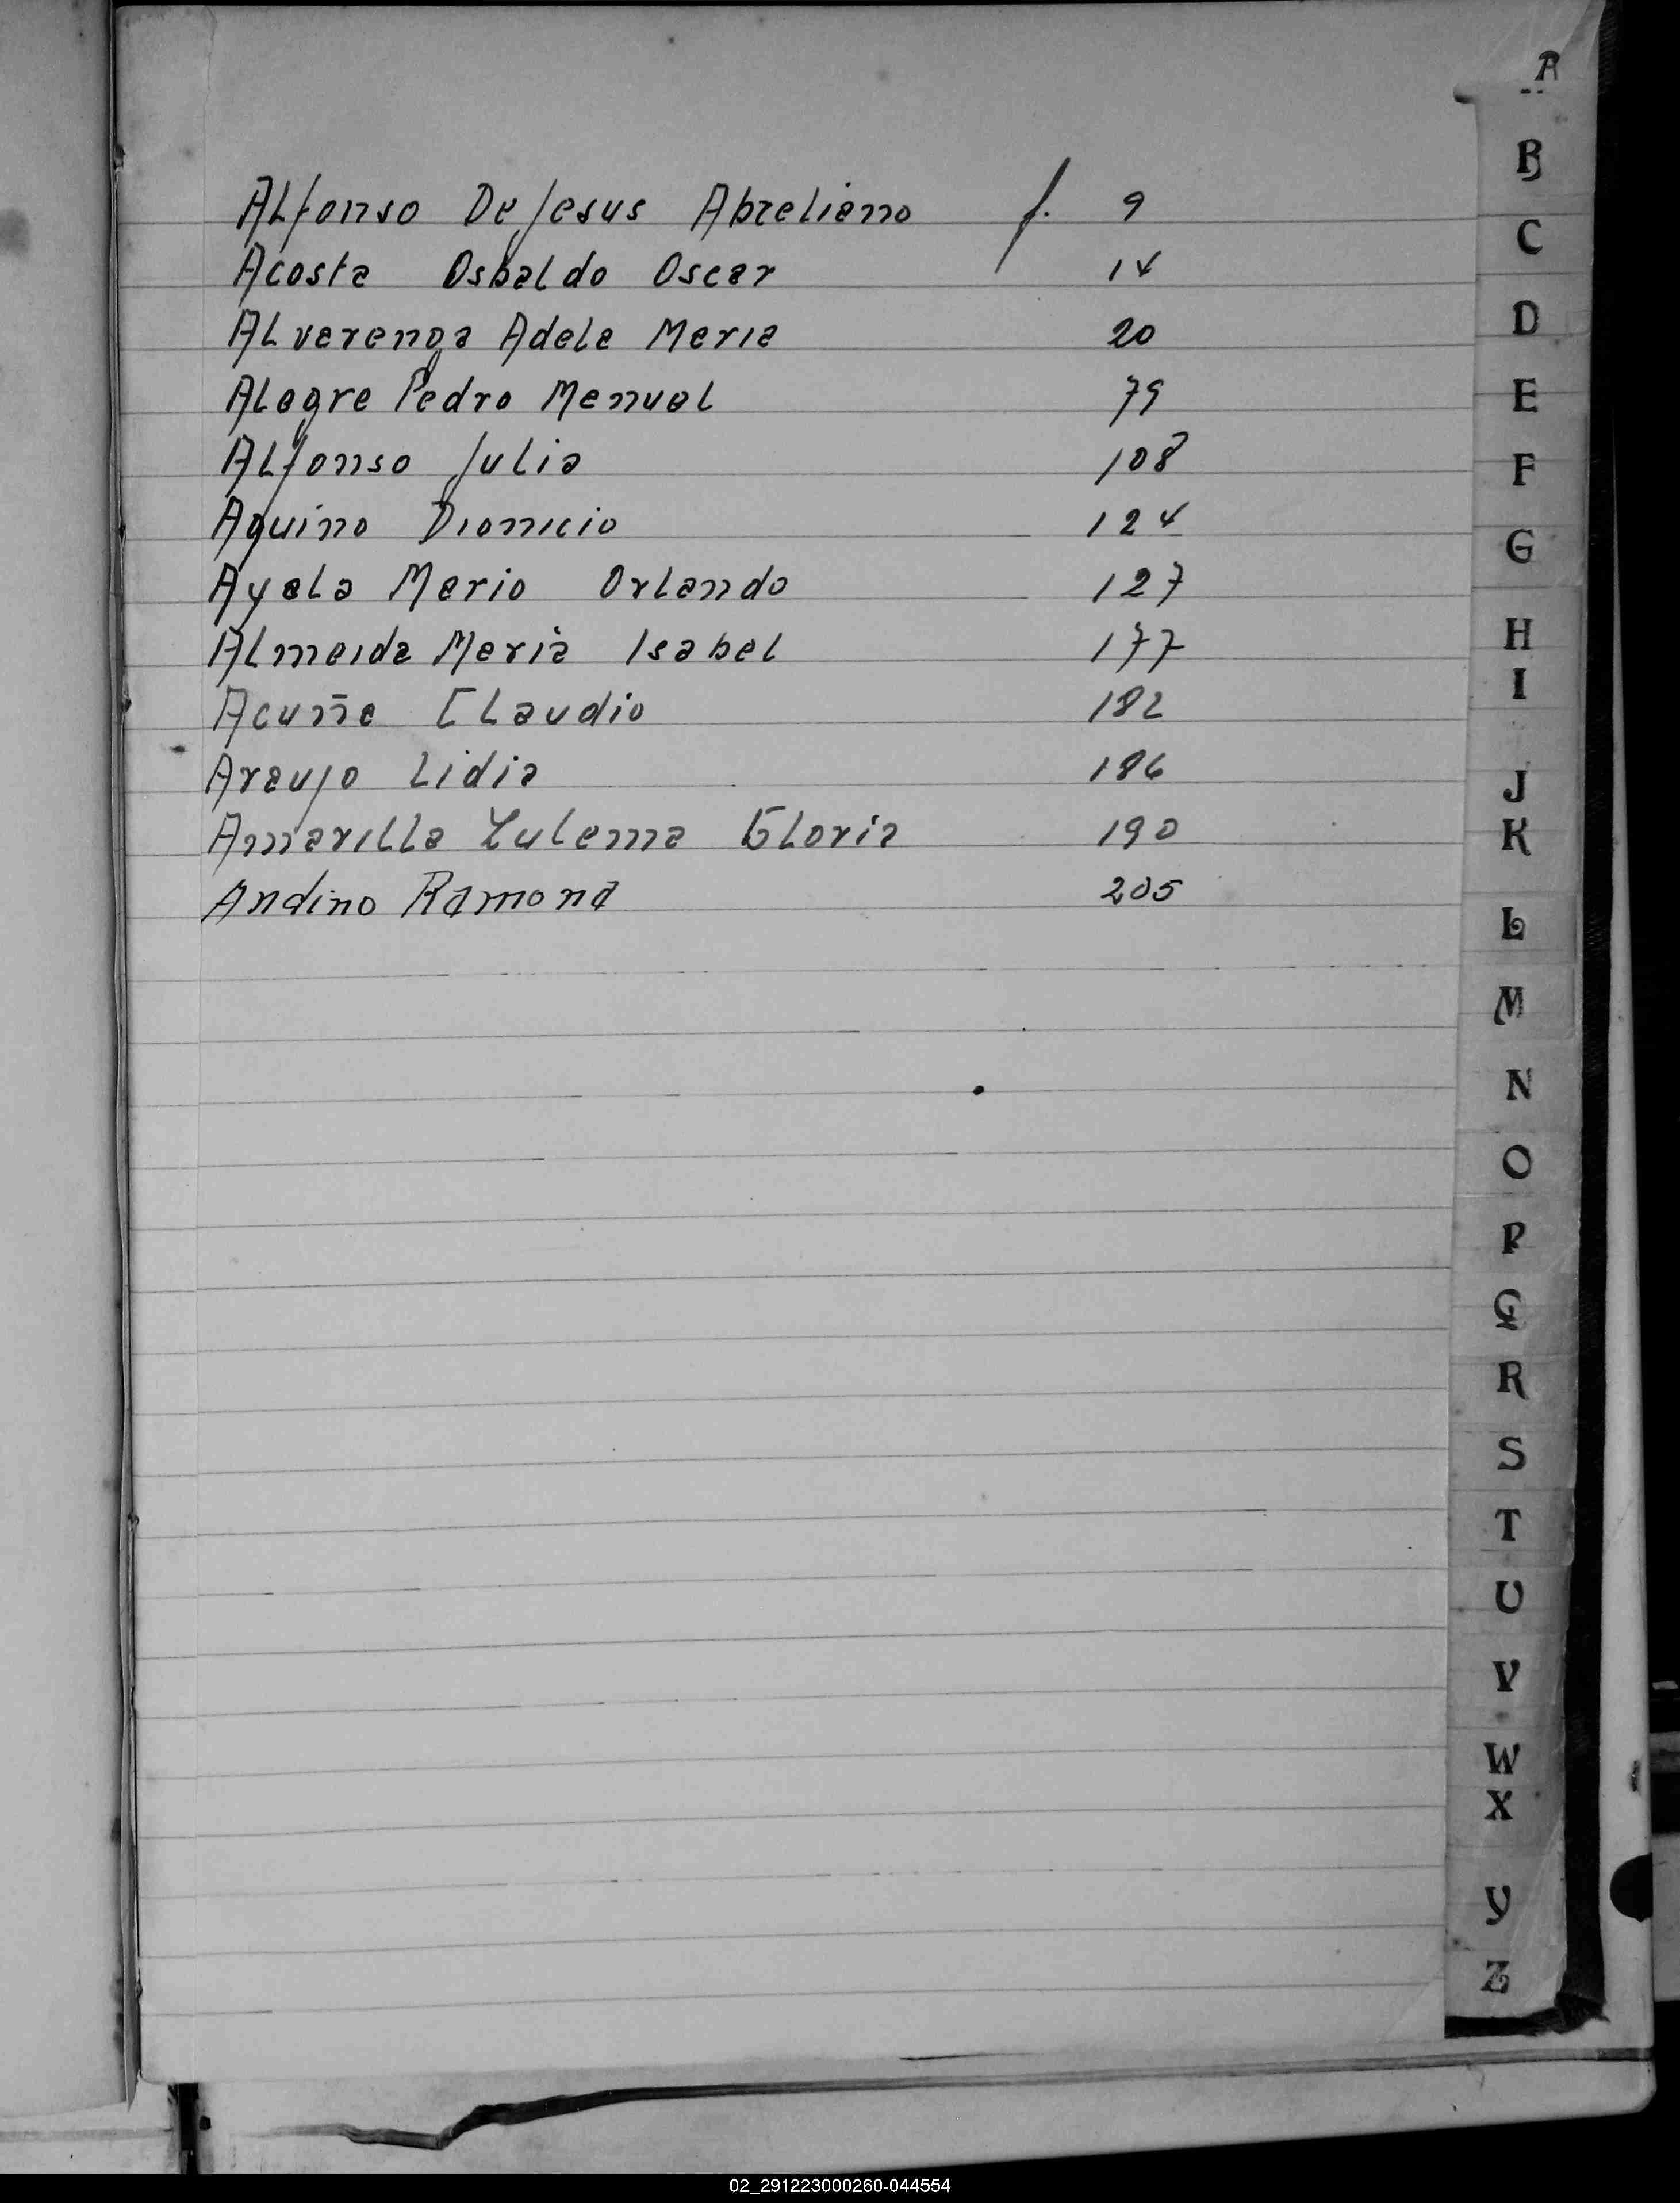 A
Alfonso De Jesus Abreliano f. 9
Acosta Osbaldo Oscar 14
Alvarenga Adela Maria 20
Alegre Pedro Manuel 79
Alfonso Julia 108
Aquino Dionicio 124
Ayala Mario Orlando 127
Almeida Maria Isabel 177
Acuña Claudio 182
Araujo Lidia 186
Amarilla Zulema Gloria 190
Andino Ramona 205
B
C
D
E
F
G
H
I
J
K
L
M
N
O
P
Q
R
S
T
U
V
W
X
Y
Z
02_291223000260-044554